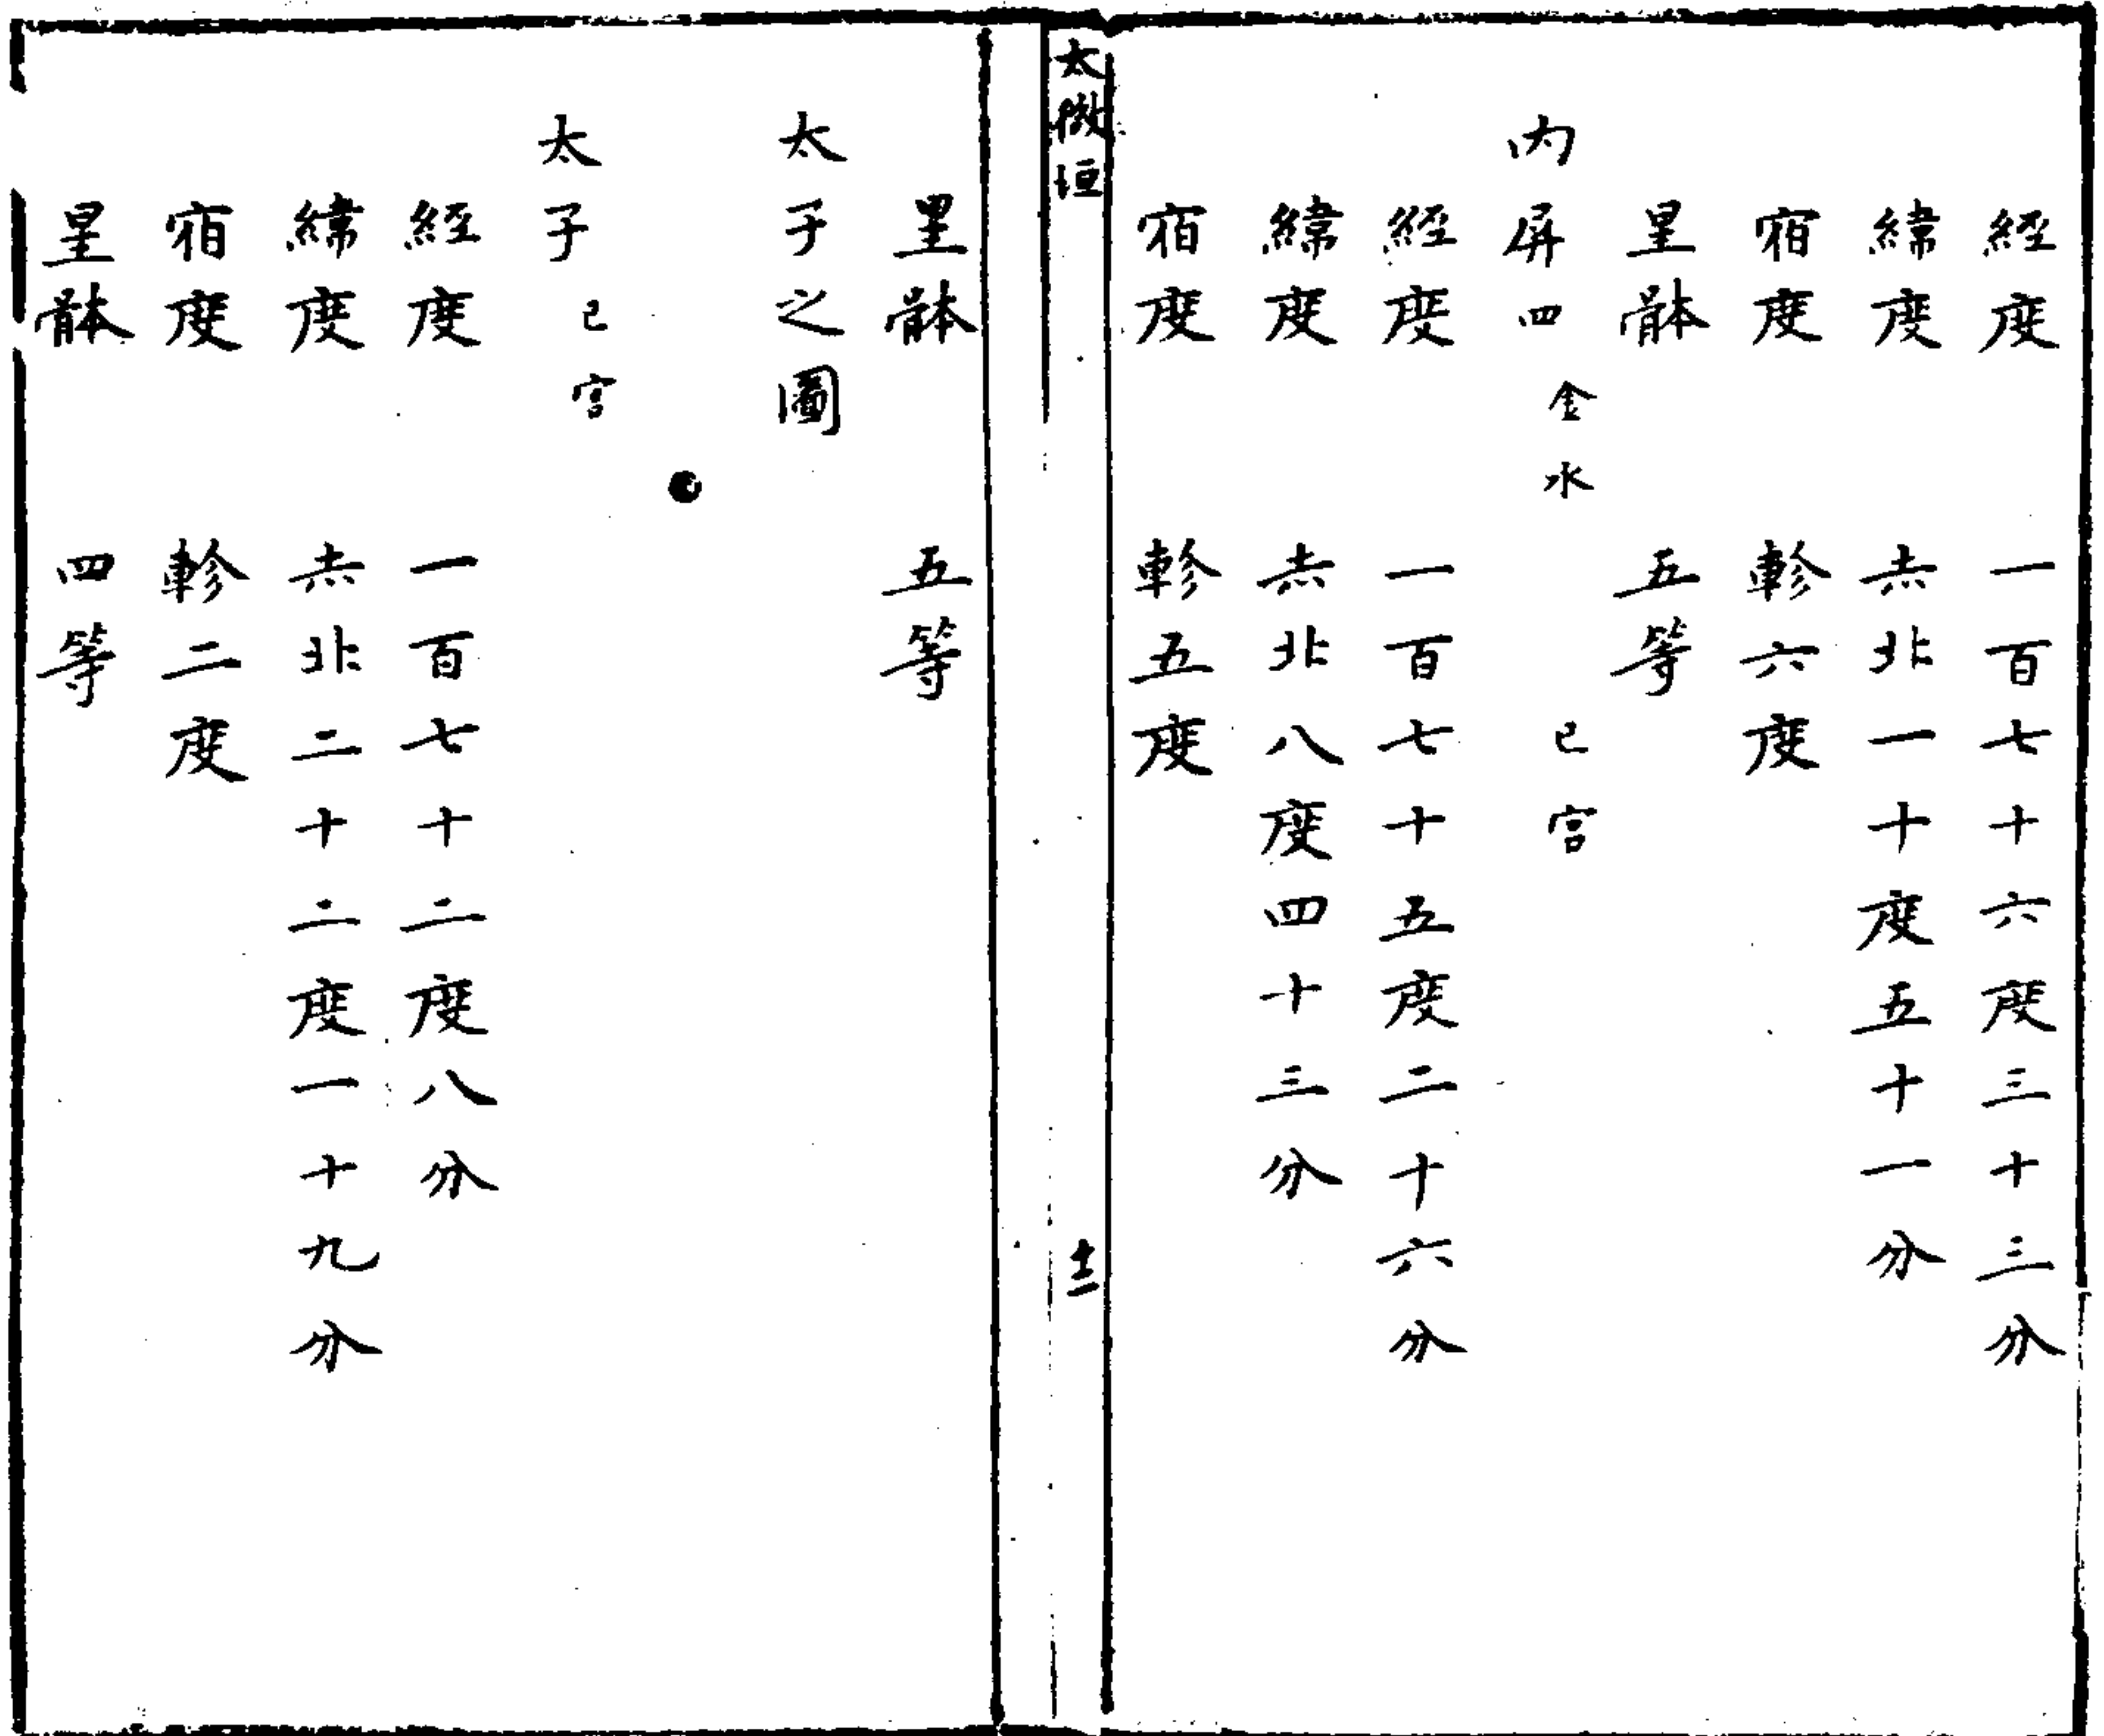 經度 一百七十六度三十三分
緯度 赤北一十度五十一分
宿度 軫六度
星體 五等
内屏四 金水 巳宮
經度 一百七十五度二十六分
緯度 赤北八度四十三分
宿度 軫五度
太微垣 十二
星體 五等
太子之圖
太子 巳宮
經度 一百七十二度八分
緯度 赤北二十二度一十九分
宿度 軫二度
星體 四等